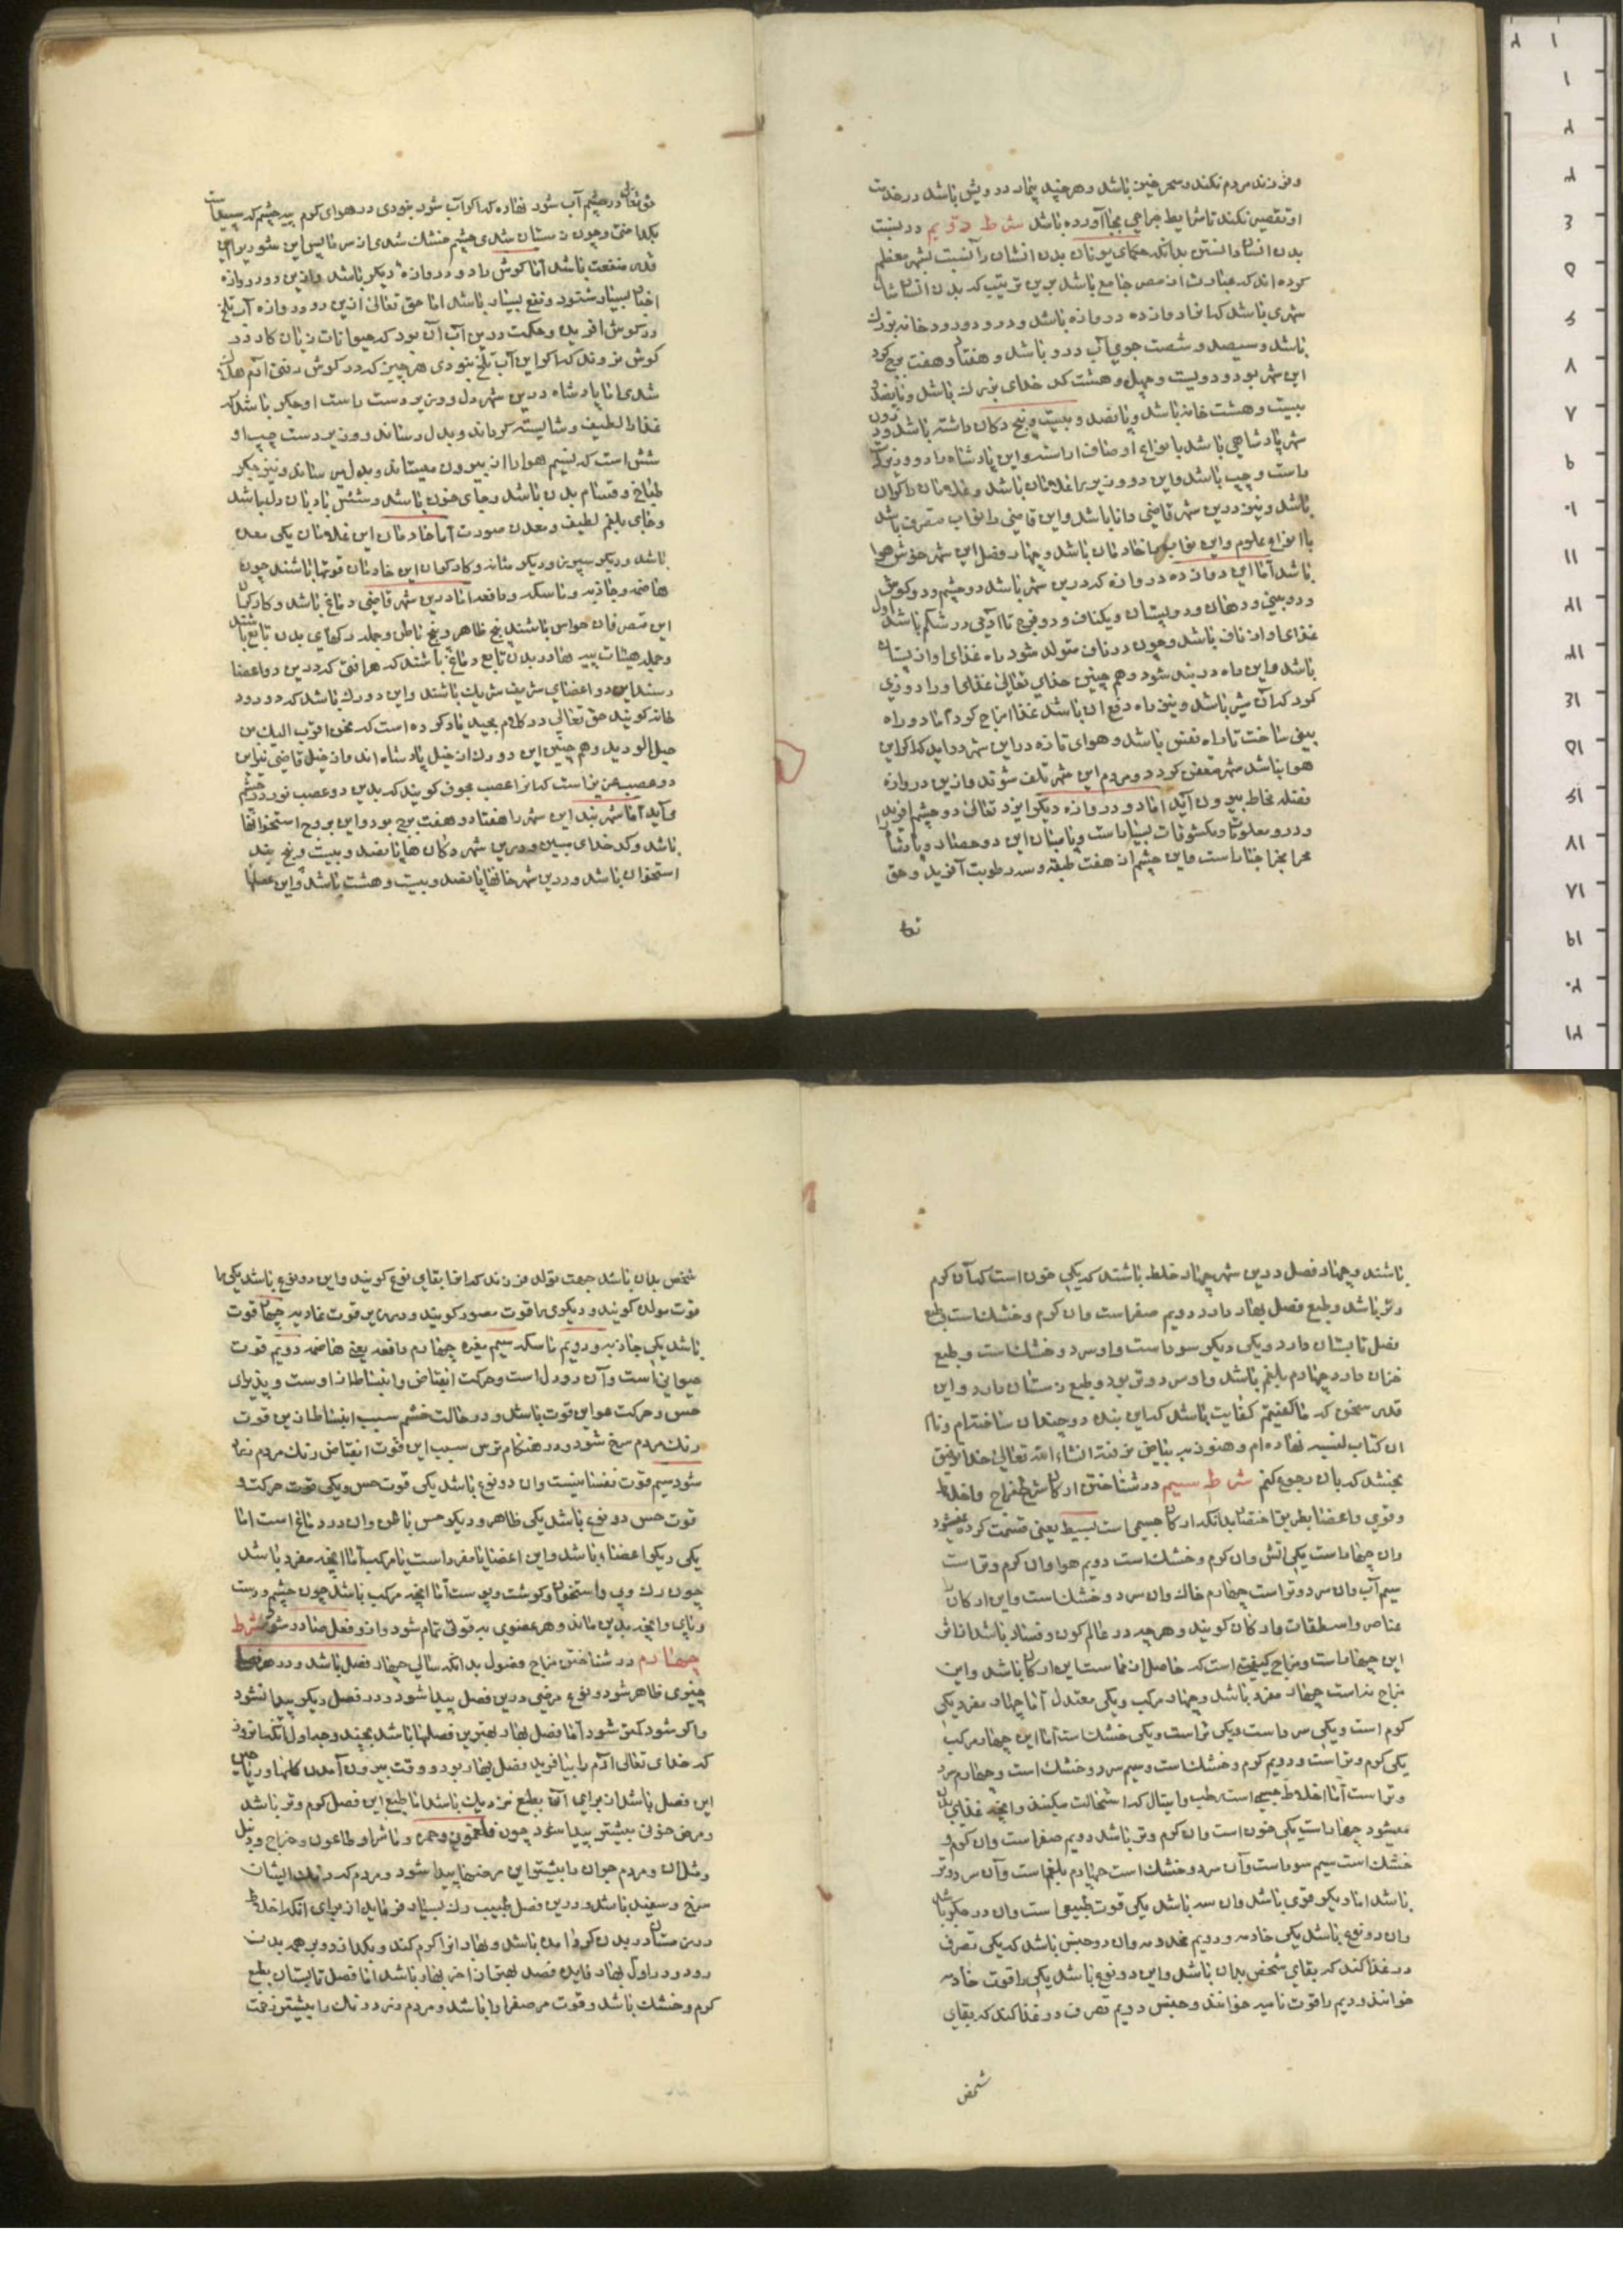 و فرزند مردم نکند و سحر خیز باشد و هر چند بیمار درویش باشد در خدمت
او تقصیر نکند تا شرایط جراحی بجا آورده باشد شرط دویم در نسبت
بدن انسان دانستن بدانکه حکمای یونان بدن انسان را نسبت بشهر معظم
کرده اند که عبارت از مصر جامع باشد برین ترتیب که بدن انسان
شهری باشد که انرا دوازده دروازه باشد و درو دو رود خانه بزرک
باشد و سیصد و شصت جوی آب درو باشد و هفتاد و هفت برج کرد
این شهر بود و دویست و چهل و هشت کد خدای بزرک باشد و پانصد
بیست و هشت خانه باشد و پانصد و بیست و پنج دکان داشته باشد و درون
شهر پادشاهی باشد بانواع اوصاف اراسته و این پادشاه را دو وزیر
راست و چپ باشد و این دو وزیر را غلامان باشد و غلامان را کران
باشد و نیز درین شهر قاضی دانا باشد و این قاضی را نواب متصرف باشد
با انواع علوم و این نواب را خادمان باشد و چهار فصل این شهر خوش هوا
باشد اما این دوازده دروازه که درین شهر باشد دو چشم و دو کوش
و دو بینی و دهان و دو پستان و یکناف و دو فرج تا آدمی در شکم باشد
غذای او از ناف باشد و چون در ناف متولد شود راه غذای او از پستان
باشد و این راه در بند شود و هم چنین خدای تعالی غذای او را روزی
کرد که آن شیر باشد و نیز راه دفع ان باشد غذا اخراج کرد اما دو راه
بینی ساخت تا راه نفس باشد و هوای تازه در این شهر در اید که اکر این
هوا نباشد شهر متعفن کردد و مردم این شهر تلف شوند و ازین دروازه
فضله مخاط بیرون آید اما دو دروازه دیکر ایزد تعالی دو چشم افرید
و درو معلومات و مکشوفات بسیار است
مجرا است و این چشم از هفت طبقه و سه رطوبت آفرید و حق
تعا
حق تعالی در چشم آب شور نهاده که اکر آب شور نبودی در هوای کرم پیه چشم که سپیدست
بکداختی و چون زمستان شدی چشم خشک شدی از سرما پس این شور برای
قدر منفعت باشد اما کوش را دو دروازه دیکر باشد و ازین دو دروازه
اخبار بسیار شنود و نفع بسیار باشد اما حق تعالی ازین دو دروازه آب تلخ
در کوش افرید و حکمت درین آب آن بود که حیوانات زیان کار در
کوش نروند که اکر این آب تلخ نبودی هر چیز که در کوش رفتی آدم هلاک
شدی اما پادشاه درین شهر دل و وزیر دست راست او جکر باشد که
غذا را لطیف و شایسته کرداند و بدل رساند و وزیر دست چپ او
شش است که نسیم هوا را از بیرون میستاند و بدل میرساند و نیز جکر
طباخ و قسام بدن باشد و جای خون باشد و شش بادبان دل باشد
و جای بلغم لطیف و معدن صورت اما خادمان این غلامان یکی معده
باشد و دیکر سپرز و دیکر مثانه و کارکران این خادمان قوتها باشند چون
هاضمه و جاذبه و ماسکه و دافعه اما درین شهر قاضی دماغ باشد و کارکران
این متصرفان حواس باشند پنج ظاهر و پنج باطن و جمله رکهای بدن تابع باشند
و جمله هیئات پیه ها در بدن تابع دماغ باشند که هر افتی که درین دو اعضا
رسد این دو اعضای شریف شریک باشند و این دو رک باشد که دو رود
خانه کویند حق تعالی در کلام مجید یاد کرده است که نحن اقرب الیه من
حبل الورید و هم چنین این دو رک از خیل پادشاه اند و از خیل قاضی نیز این
دو عصب عزیز است که انرا عصب مجوف کویند که بدین دو عصب نور در چشم
می آید اما شهر بند این شهر را هفتاد و هفت برج بود و این بروج استخوانها
باشد و کد خدای مبین و درین شهر دکان ها پانصد و بیست و پنج بند
استخوان باشد و درین شهر خانها پانصد و بیست و هشت باشد و این عضلها
باشند و چهار فصل درین شهر چهار خلط باشند که یکی خون است که آن کرم
و تر باشد و طبع فصل بهار دارد دویم صفراست و ان کرم و خشک است و طبع
فصل تابستان دارد و یکی دیکر سوداست و او سرد و خشک است و طبع
خزان دارد چهارم بلغم باشد و او سرد و تر بود و طبع زمستان دارد و این
قدر سخن که ما کفتیم کفایت باشد که این بنده دو چندان ساخته ام و نام
ان کتاب نهاده ام و هنوز به بیاض نرفته انشاء الله تعالی خدا توفیق
بخشد که بان رجوع کنم شرط سیم در شناختن ارکان شرح مزاج و اخلاط
و قوی و اعضا بطریق اختصار بدانکه ارکان جسمی است بسیط یعنی قسمت کرده نمیشود
وان چهار است یکی اتش وان کرم و خشک است دویم هوا وان کرم و تر است
سیم آب وان سرد و تر است چهارم خاک وان سرد و خشک است و این ارکان
عناصر و اسطقسات و ارکان کویند و هر چه در عالم کون و فساد باشد از اثر
این چهار است و مزاج کیفیتی است که حاصل از تماست این ارکان باشد و این
مزاج نه است چهار مفرد باشد و چهار مرکب و یکی معتدل اما چهار مفرد یکی
کرم است و یکی سرد است و یکی تر است و یکی خشک است اما این چهار مرکب
یکی کرم و تر است و دویم کرم و خشک است و سیم سرد و خشک است و چهارم سرد
و تر است اما اخلاط جسمی است رطب و سیال که استحالت میکند و انچه غذای بدن
میشود چهار است یکی خون است وان کرم و تر باشد دویم صفراست وان کرم و
خشک است سیم سوداست وآن سرد و خشک است چهارم بلغم است وآن سرد و تر
باشد اما دیکر قوی باشد وان سه باشد یکی قوت طبیعی است وان در جکر باشد
وان دو نوع باشد یکی خادمه و دویم مخدومه وان دو جنس باشد که یکی تصرف
در غذا کند که بقای شخص بدان باشد و این دو نوع باشد یکی را قوت خادمه
خوانند و دیم را قوت نامیه خوانند و جنس دویم تصرف در غذا کند که بقای
شخص
شخص بدان باشد جهت تولد فرزند که انرا بقای نوع کویند و این دو نوع باشد یکی را
قوت مولده کویند و دیکری را قوت مصوره کویند و درین قوت غاذیه چهار قوت
باشد یکی جاذبه و دویم ماسکه سیم مغیره چهارم دافعه یعنی هاضمه دویم قوت
حیوانی است وآن در دل است و حرکت انقباض و انبساط از اوست و پذیرای
حس و حرکت هم این قوت باشد و در حالت خشم سبب انبساط ازین قوت
رنک مردم سرخ شود و در هنکام ترس سبب این قوت انقباض رنک مردم زرد
شود سیم قوت نفسانیست وان دو نوع باشد یکی قوت حس و یکی قوت حرکت و
قوت حس دو نوع باشد یکی ظاهر و دیکر حس باطن وان در دماغ است اما
یکی دیکر اعضا باشد و این اعضا یا مفرد است یا مرکب اما انچه مفرد باشد
چون رک و پی و استخوان و کوشت و پوست اما انچه مرکب باشد چون چشم و دست
و پای و انچه بدین ماند و هر عضوی به قوتی تمام شود وازو فعل صادر شود شرط
چهارم در شناختن مزاج فصول بدانکه سالی چهار فصل باشد و در هر فصل
چیزی ظاهر شود و نوع مرضی درین فصل پیدا شود و در فصل دیکر پیدا نشود
واکر شود کمتر شود اما فصل بهار بهترین فصلها باشد بچند وجه اول آنکه روزی
که خدای تعالی آدم را بیافرید فصل بهار بود و وقت بیرون آمدن کلها و ریاحین
این فصل باشد از برای آنکه بطبع نزدیک باشد اما طبع این فصل کرم و تر باشد
و مرض خونی بیشتر پیدا شود چون فلغمون و حمره و ماشرا و طاعون و خراج و دبل
و مثل ان و مردم جوان را بیشتر این مرضها پیدا شود و مردم که رنک ایشان
سرخ و سفید باشد و درین فصل طبیب رک بسیار فرماید از برای انکه اخلاط
در زمستان در بدن کرد امده باشد و بهار انرا کرم کند و بکدازد و بر همه بدن
رود و در اول بهار فایده فصد بهتر از اخر بهار باشد اما فصل تابستان بطبع
کرم و خشک باشد و قوت مر صفرا را باشد و مردم زرد رنک را بیشتر زحمت